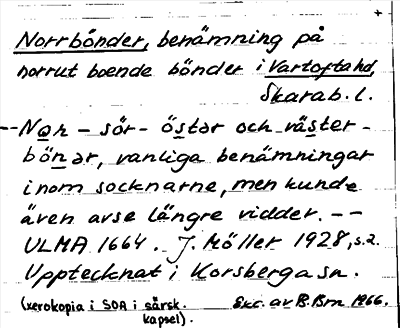 +
Norrbönder, benämning på
norrut boende bönder i Vartofta hd,
Skarab. l.
--Nor - sör - östər och västər -
bönər, vanliga benämningar
inom socknarne, men kunde
även avse längre vidder. --
ULMA 1664. J. Möller 1928, s.2.
Upptecknat i Korsberga sn.
(xerokopia i SOA i särsk. Skr. av B. Brn 1966.
kapsel).